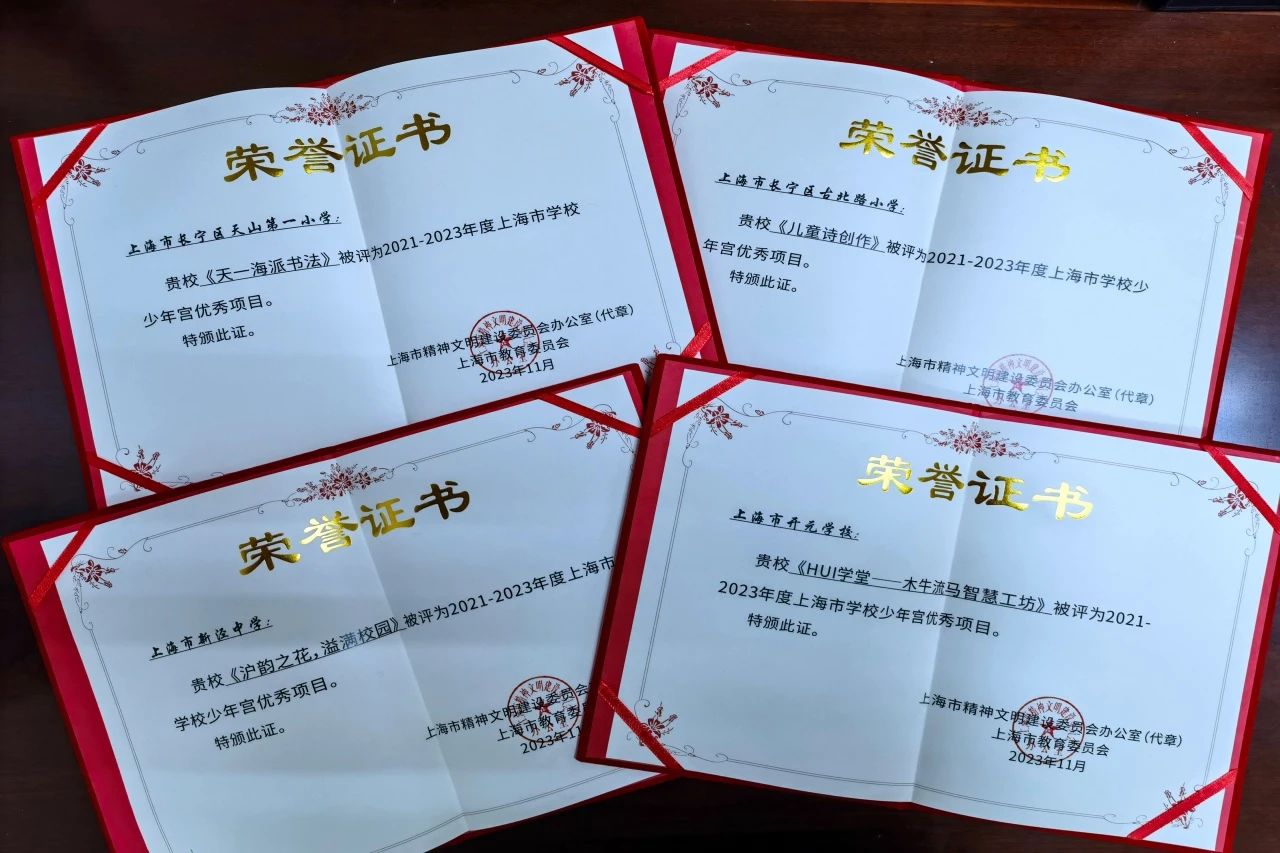 荣誉证书
上海市长宁区天山第一小学：
贵校《天一海派书法》被评为2021-2023年度上海市学校
少年宫优秀项目。
特颁此证。
上海市精神文明建设委员会办公室（代章）
上海市教育委员会
2023年11月
荣誉证书
上海市长宁区台北路小学：
贵校《儿童诗创作》被评为2021-2023年度上海市学校少
年宫优秀项目。
特颁此证。
上海市精神文明建设委员会办公室（代章）
上海市教育委员会
荣誉证书
上海市新泾中学：
贵校《沪韵之花，溢满校园》被评为2021-2023年度上海市
学校少年宫优秀项目。
特颁此证。
上海市精神文明建设委员会
上海市教育委员
2023年11
荣誉证书
上海市开元学校：
贵校《HUI学堂——木牛流马智慧工坊》被评为2021-
2023年度上海市学校少年宫优秀项目。
特颁此证。
上海市精神文明建设委员会办公室（代章）
上海市教育委员会
2023年11月